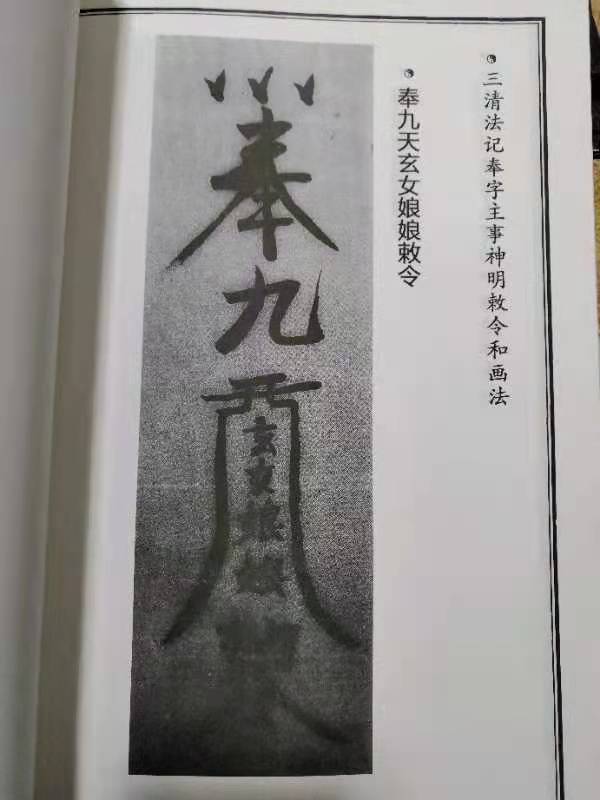 三清法记奉字主事神明敕令和画法
奉九天玄女娘娘敕令
奉九天玄女娘娘